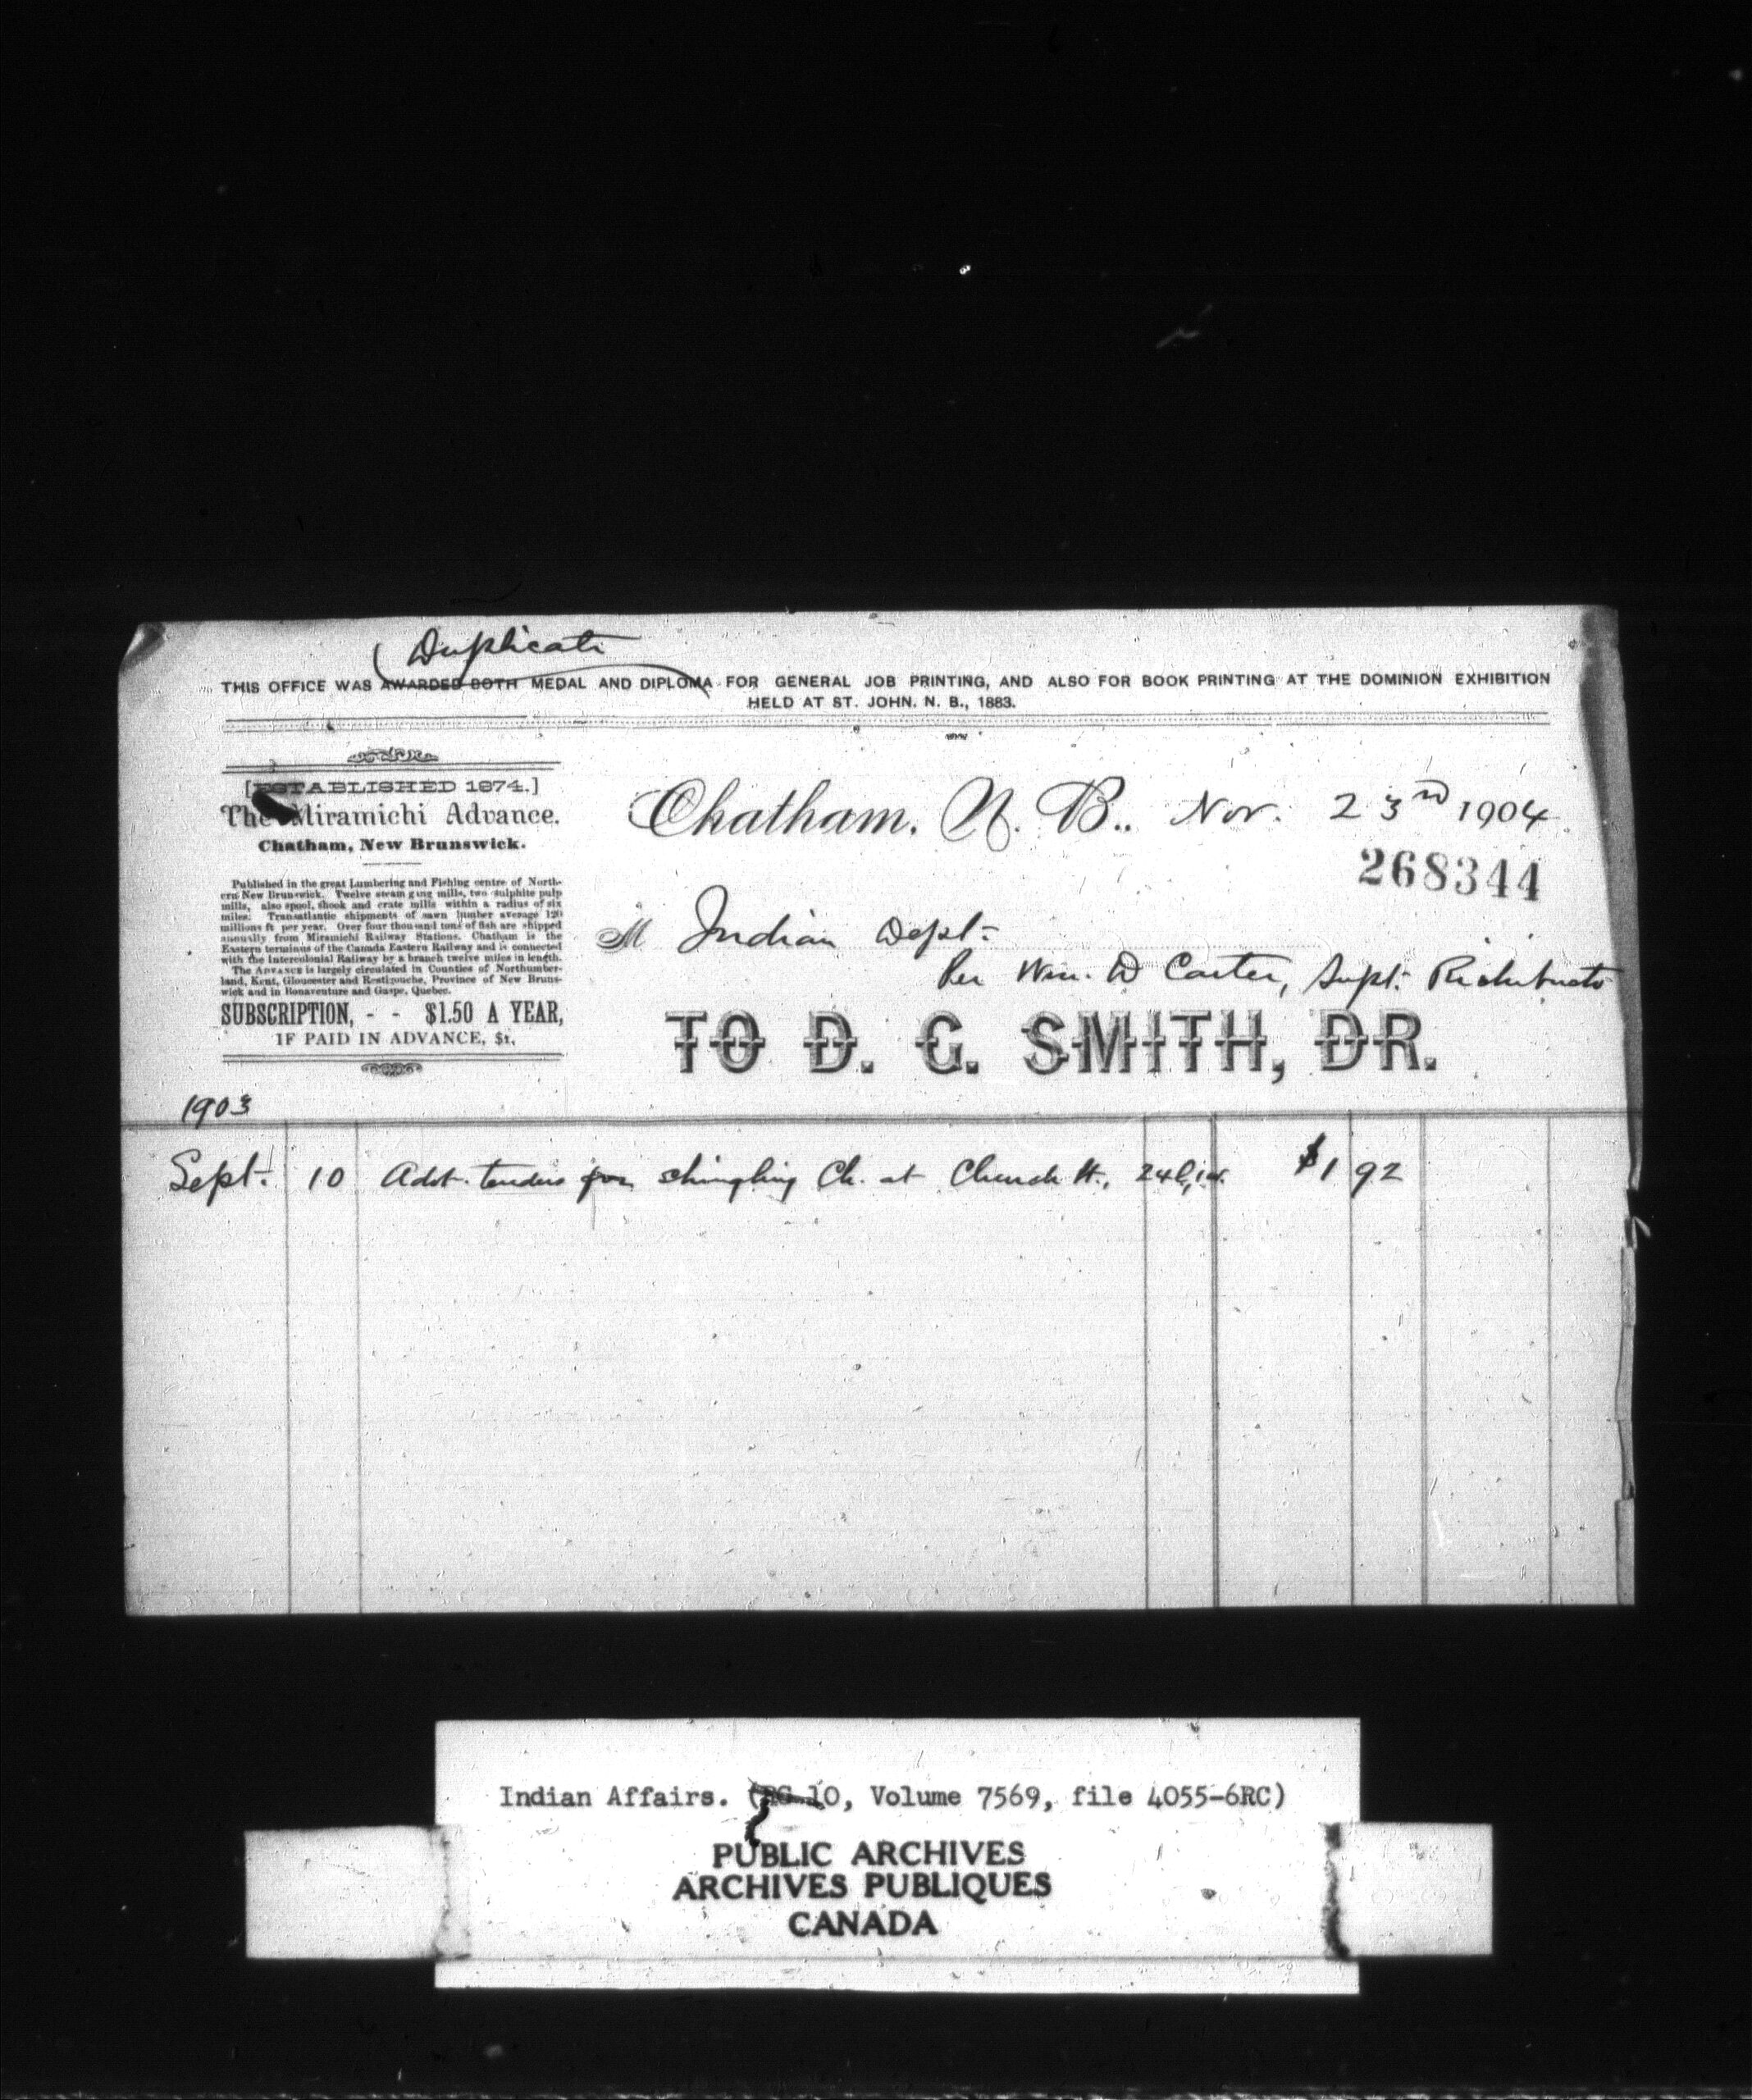 Duplicate
THIS OFFICE WAS AWARDED BOTH MEDAL AND DIPLOMA FOR GENERAL JOB PRINTING, AND ALSO FOR BOOK PRINTING AT THE DOMINION EXHIBITION
HELD AT ST. JOHN. N. B., 1883.
[ESTABLISHED 1874.]
The Miramichi Advance.
Chatham, New Brunswick.
Published in the great Lumbering and Fishing centre of North-
ern New Brunswick. Twelve steam gang mills, two sulphite pulp
mills, also spool, shook and crate mills within a radius of six
miles. Transatlantic shipments of sawn lumber average 120
millions ft per year. Over four thousand tons of fish are shipped
annually from Miramichi Railway Stations. Chatham is the
Eastern terminus of the Canada Eastern Railway and is connected
with the Intercolonial Railway by a branch twelve miles in length.
The ADVANCE is largely circulated in Counties of Northumber-
land, Kent, Gloucester and Restigouche, Province of New Bruns-
wick and in Bonaventure and Gaspe, Quebec.
SUBSCRIPTION, - - $1.50 A YEAR,
IF PAID IN ADVANCE, $1.
Chatham, N. B.. Nov. 23rd 1904
268344
M Indian Dept.
Per Wm. D Carter, Supt. Richibucto
TO D. G. SMITH, DR.
1903
Sept. 10 Advt. tenders for shingling Ch. at Church Pt., 24 l, 1 i. $1 92
Indian Affairs. (RG 10, Volume 7569, file 4055-6RC)
PUBLIC ARCHIVES
ARCHIVES PUBLIQUES
CANADA